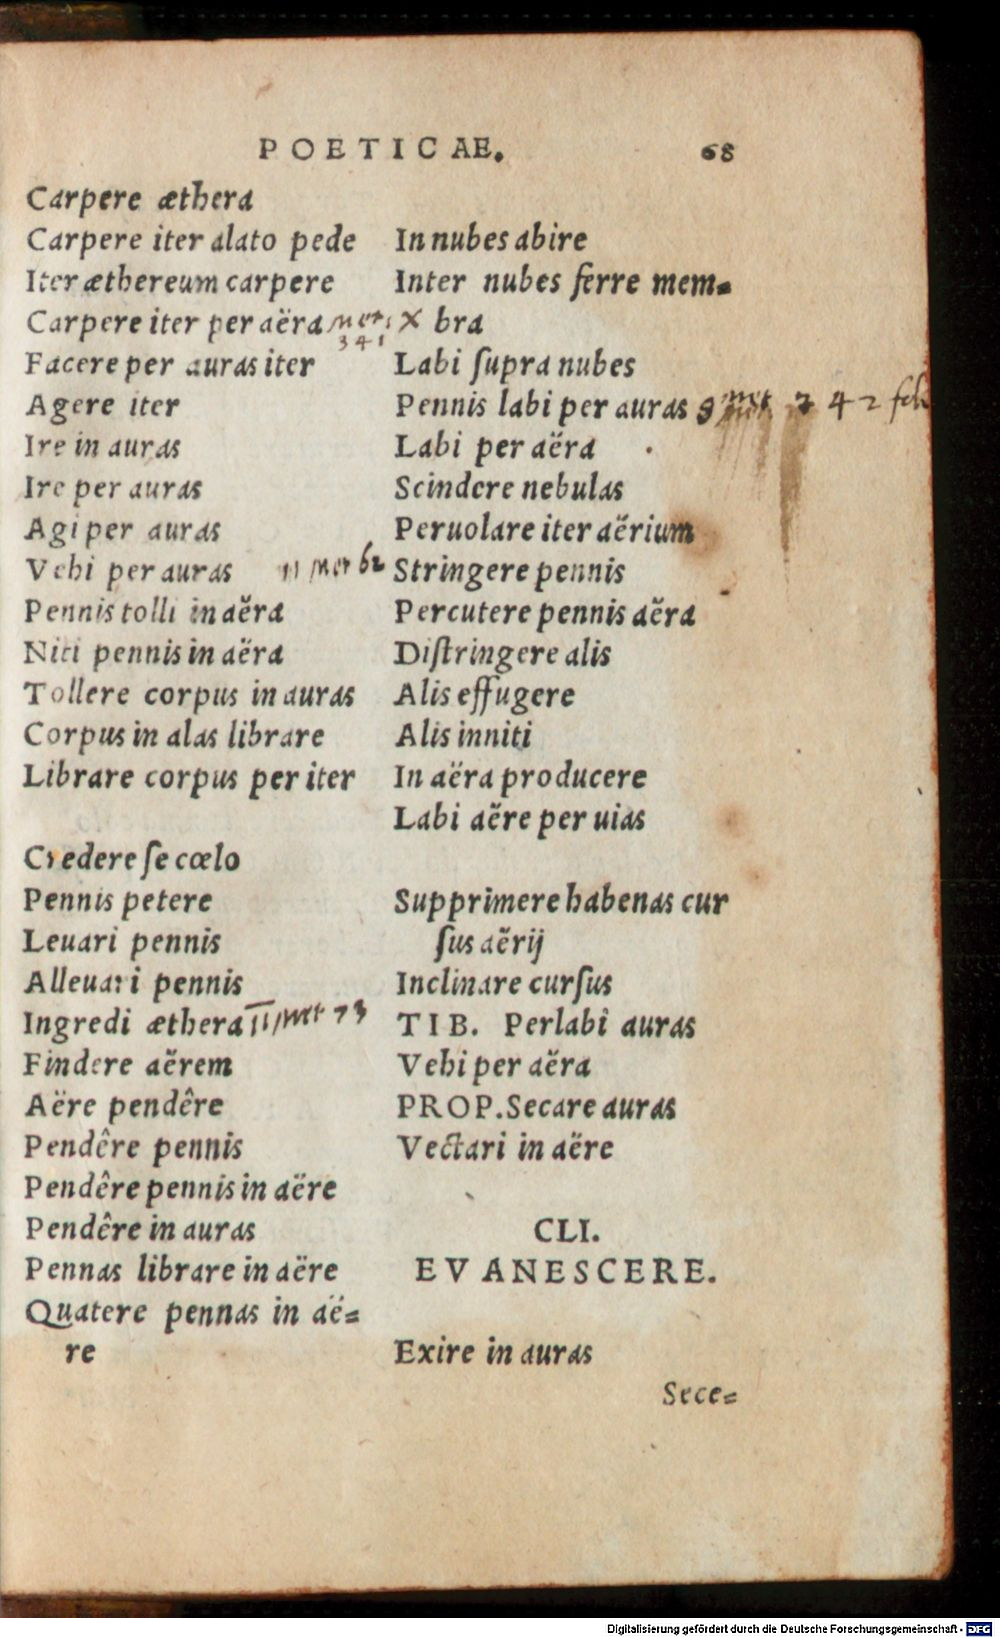 POETICAE. 68
Carpere æthera
Carpere iter alato pede
Iter æthereum carpere
Carpere iter per aëra met, X
341
Facere per auras iter
Agere iter
Ire in auras
Ire per auras
Agi per auras
Vehi per auras 11 met 62
Pennis tolli in aëra
Niti pennis in aëra
Tollere corpus in auras
Corpus in alas librare
Librare corpus per iter
Credere se cœlo
Pennis petere
Leuari pennis
Alleuari pennis
Ingredi æthera 11 met 73
Findere aërem
Aëre pendêre
Pendêre pennis
Pendêre pennis in aëre
Pendêre in auras
Pennas librare in aëre
Quatere pennas in aë=
re
In nubes abire
Inter nubes ferre mem=
bra
Labi ſupra nubes
Pennis labi per auras 9 met 242
Labi per aëra
Scindere nebulas
Peruolare iter aërium
Stringere pennis
Percutere pennis aëra
Diſtringere alis
Alis effugere
Alis inniti
In aëra producere
Labi aëre per uias
Supprimere habenas cur
ſus aërij
Inclinare curſus
TIB. Perlabi auras
Vehi per aëra
PROP. Secare auras
Vectari in aëre
CLI.
EVANESCERE.
Exire in auras
Sece=
Digitalisierung gefördert durch die Deutsche Forschungsgemeinschaft - DFG